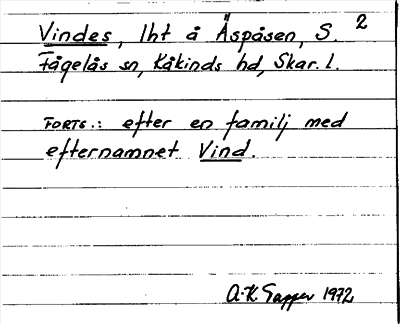 Vindes, lht å Äspåsen, S. 2
Fågelås sn, Kåkinds hd, Skar. l.
FORTS.: efter en familj med
efternamnet Vind.
A-K Sapper 1972